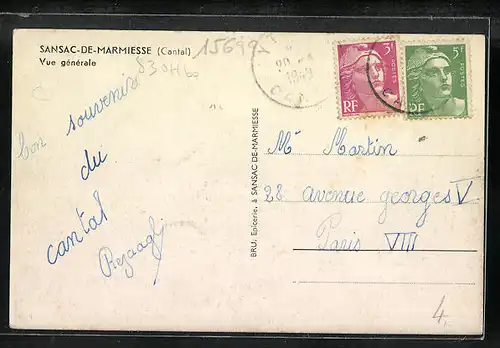 SANSAC-DE-MARMIESSE (Cantal)
Vue générale
15699
bon souvenirs
du
cantal
BRU, Epicerie, à SANSAC-DE-MARMIESSE
1949
3F
POSTES
RF
5F
POSTES
RF
Mr Martin
28 avenue georges V
Paris VIII
4